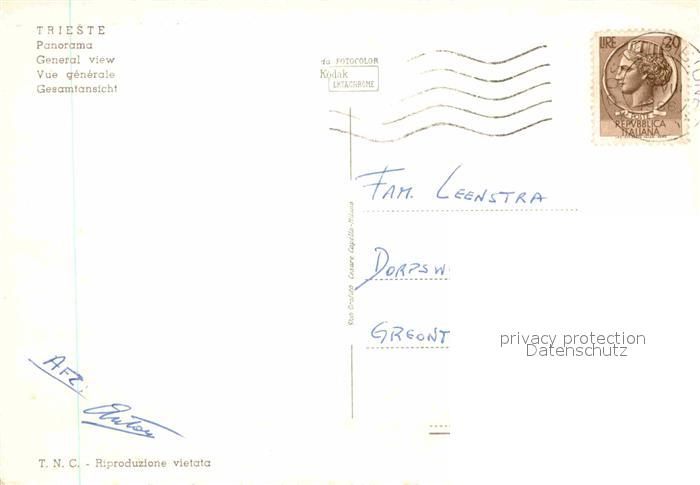 TRIESTE
Panorama
General view
Vue générale
Gesamtansicht
da FOTOCOLOR
Kodak
EKTACHROME
LIRE 20
POSTE
REPVBBLICA
ITALIANA
FAM. LEENSTRA
DORPSW
GREONT
privacy protection
Datenschutz
AFZ: Anton
T. N. C. - Riproduzione vietata
Cesare Capello - Milano